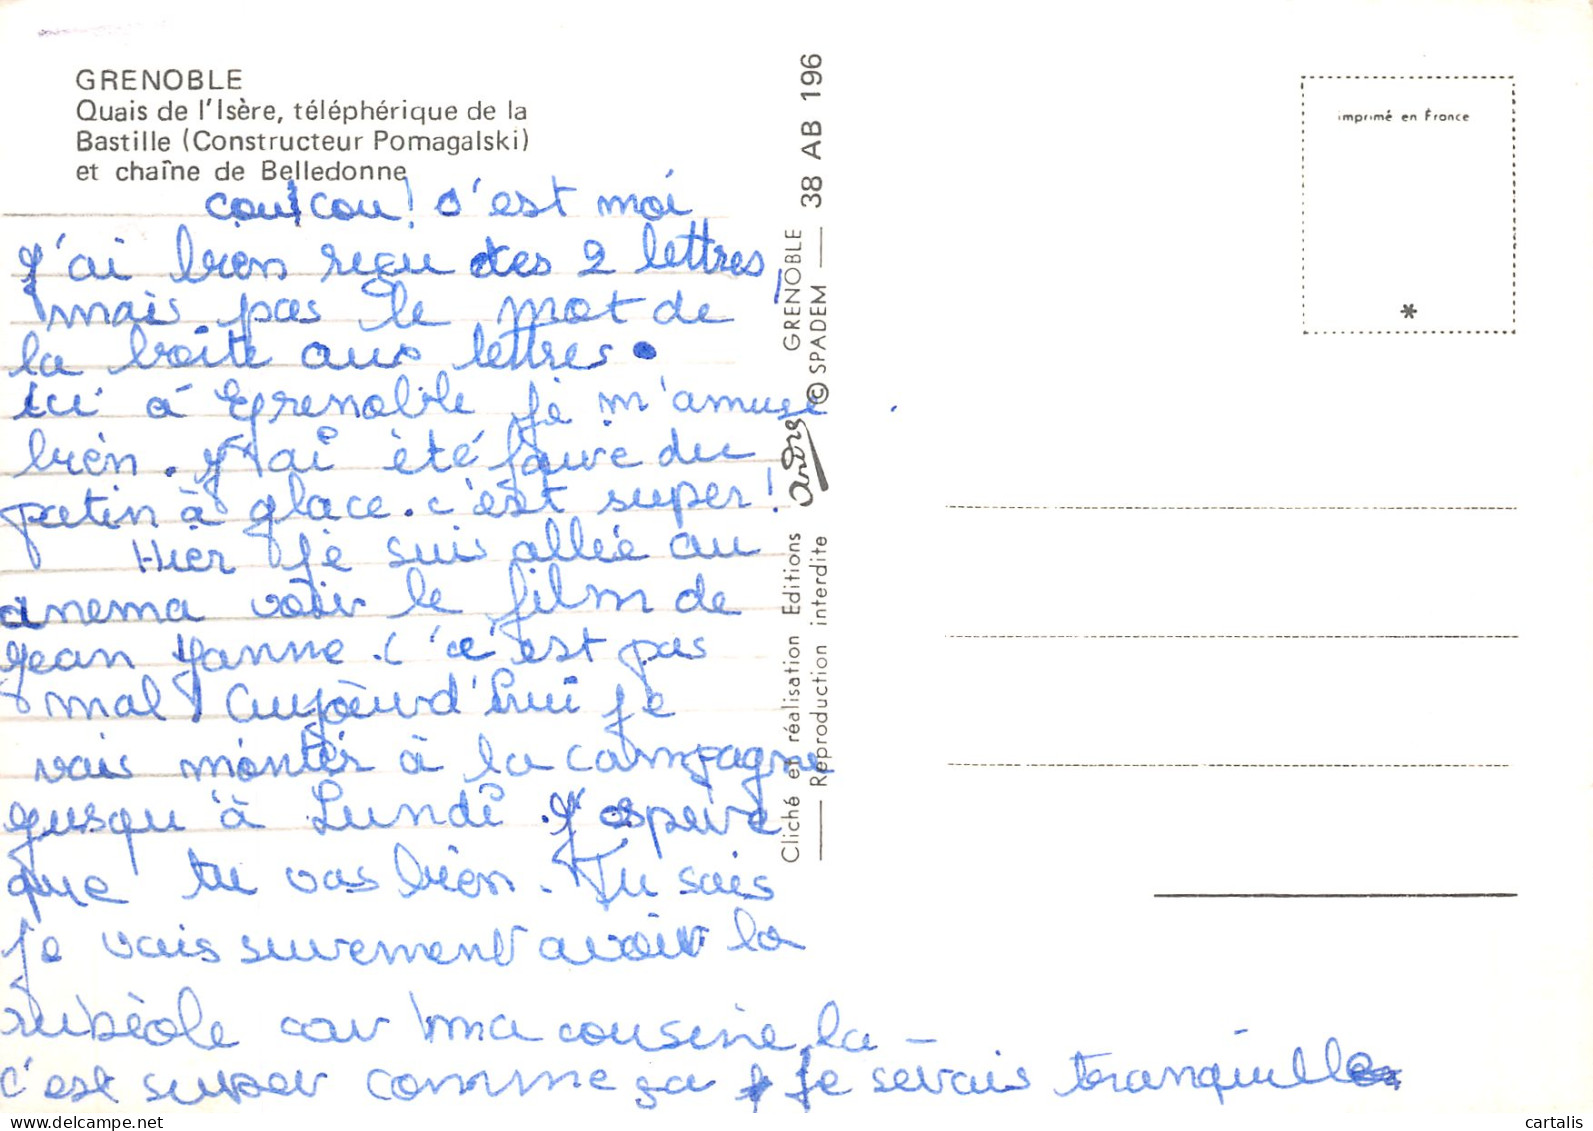 GRENOBLE
Quais de l'Isère, téléphérique de la
Bastille (Constructeur Pomagalski)
et chaîne de Belledonne
coucou! c'est moi
J'ai bien reçu tes 2 lettres,
mais pas le mot de
la boite aux lettres.
ici à Grenoble je m'amuse
bien. J'ai été faire du
patin à glace. c'est super!
Hier je suis allée au
cinema voir le film de
Jean Yanne. C'est pas
mal! Aujourd'hui je
vais monter à la campagne
jusqu'à Lundi. J'espère
que tu vas bien. Tu sais
je vais surement avoir la
rubéole car ma cousine la -
c'est super comme ça je serais tranquille
Cliché et réalisation Editions andre GRENOBLE
Reproduction interdite © SPADEM 38 AB 196
imprimé en France
*
delcampe.net
cartalis